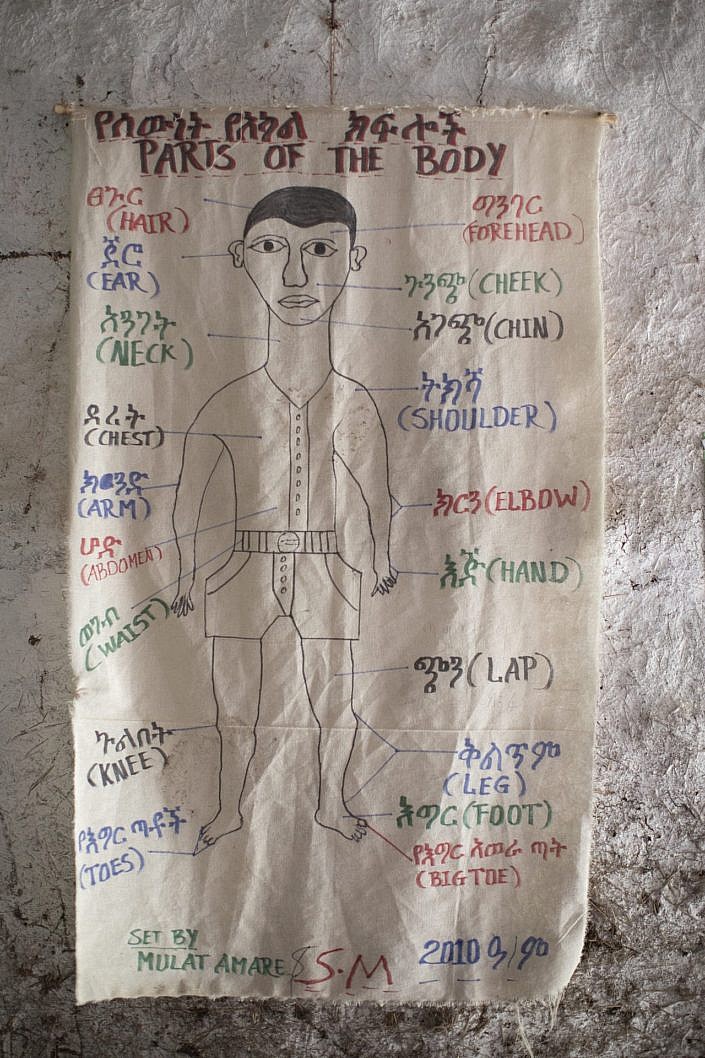 የሰውነት የአካል ክፍሎች
PARTS OF THE BODY
ፀጉር
(HAIR)
ጆሮ
(EAR)
አንገት
(NECK)
ደረት
(CHEST)
ክወንድ
(ARM)
ሆድ
(ABDOMEN)
ወገብ
(WAIST)
ጉልበት
(KNEE)
የእግር ጣቶች
(TOES)
ግንባር
(FOREHEAD)
ጉንጭ (CHEEK)
አገጭ (CHIN)
ትክሻ
(SHOULDER)
ክርን (ELBOW)
እጅ (HAND)
ጭን (LAP)
ቅልጥም
(LEG)
እግር (FOOT)
የእግር አወራ ጣት
(BIG TOE)
SET BY
MULAT AMARE $ S.M
2010 ዓ/ም